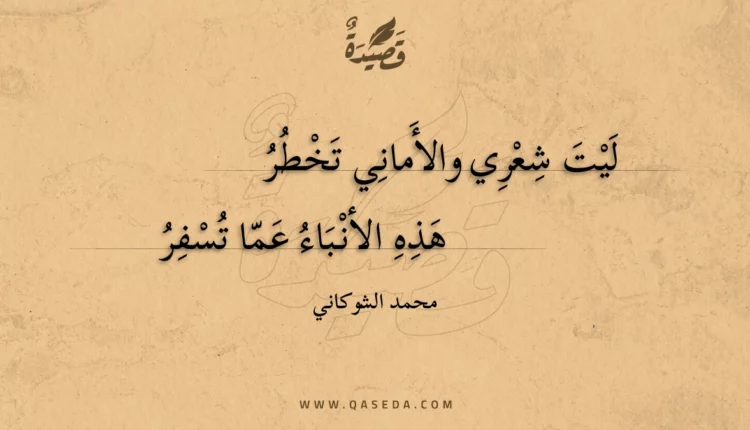 قَصِيْدَةٌ
لَيْتَ شِعْرِي والأَمانِي تَخْطُرُ
هَذِهِ الأنْبَاءُ عَمّا تُسْفِرُ
محمد الشوكاني
WWW.QASEDA.COM